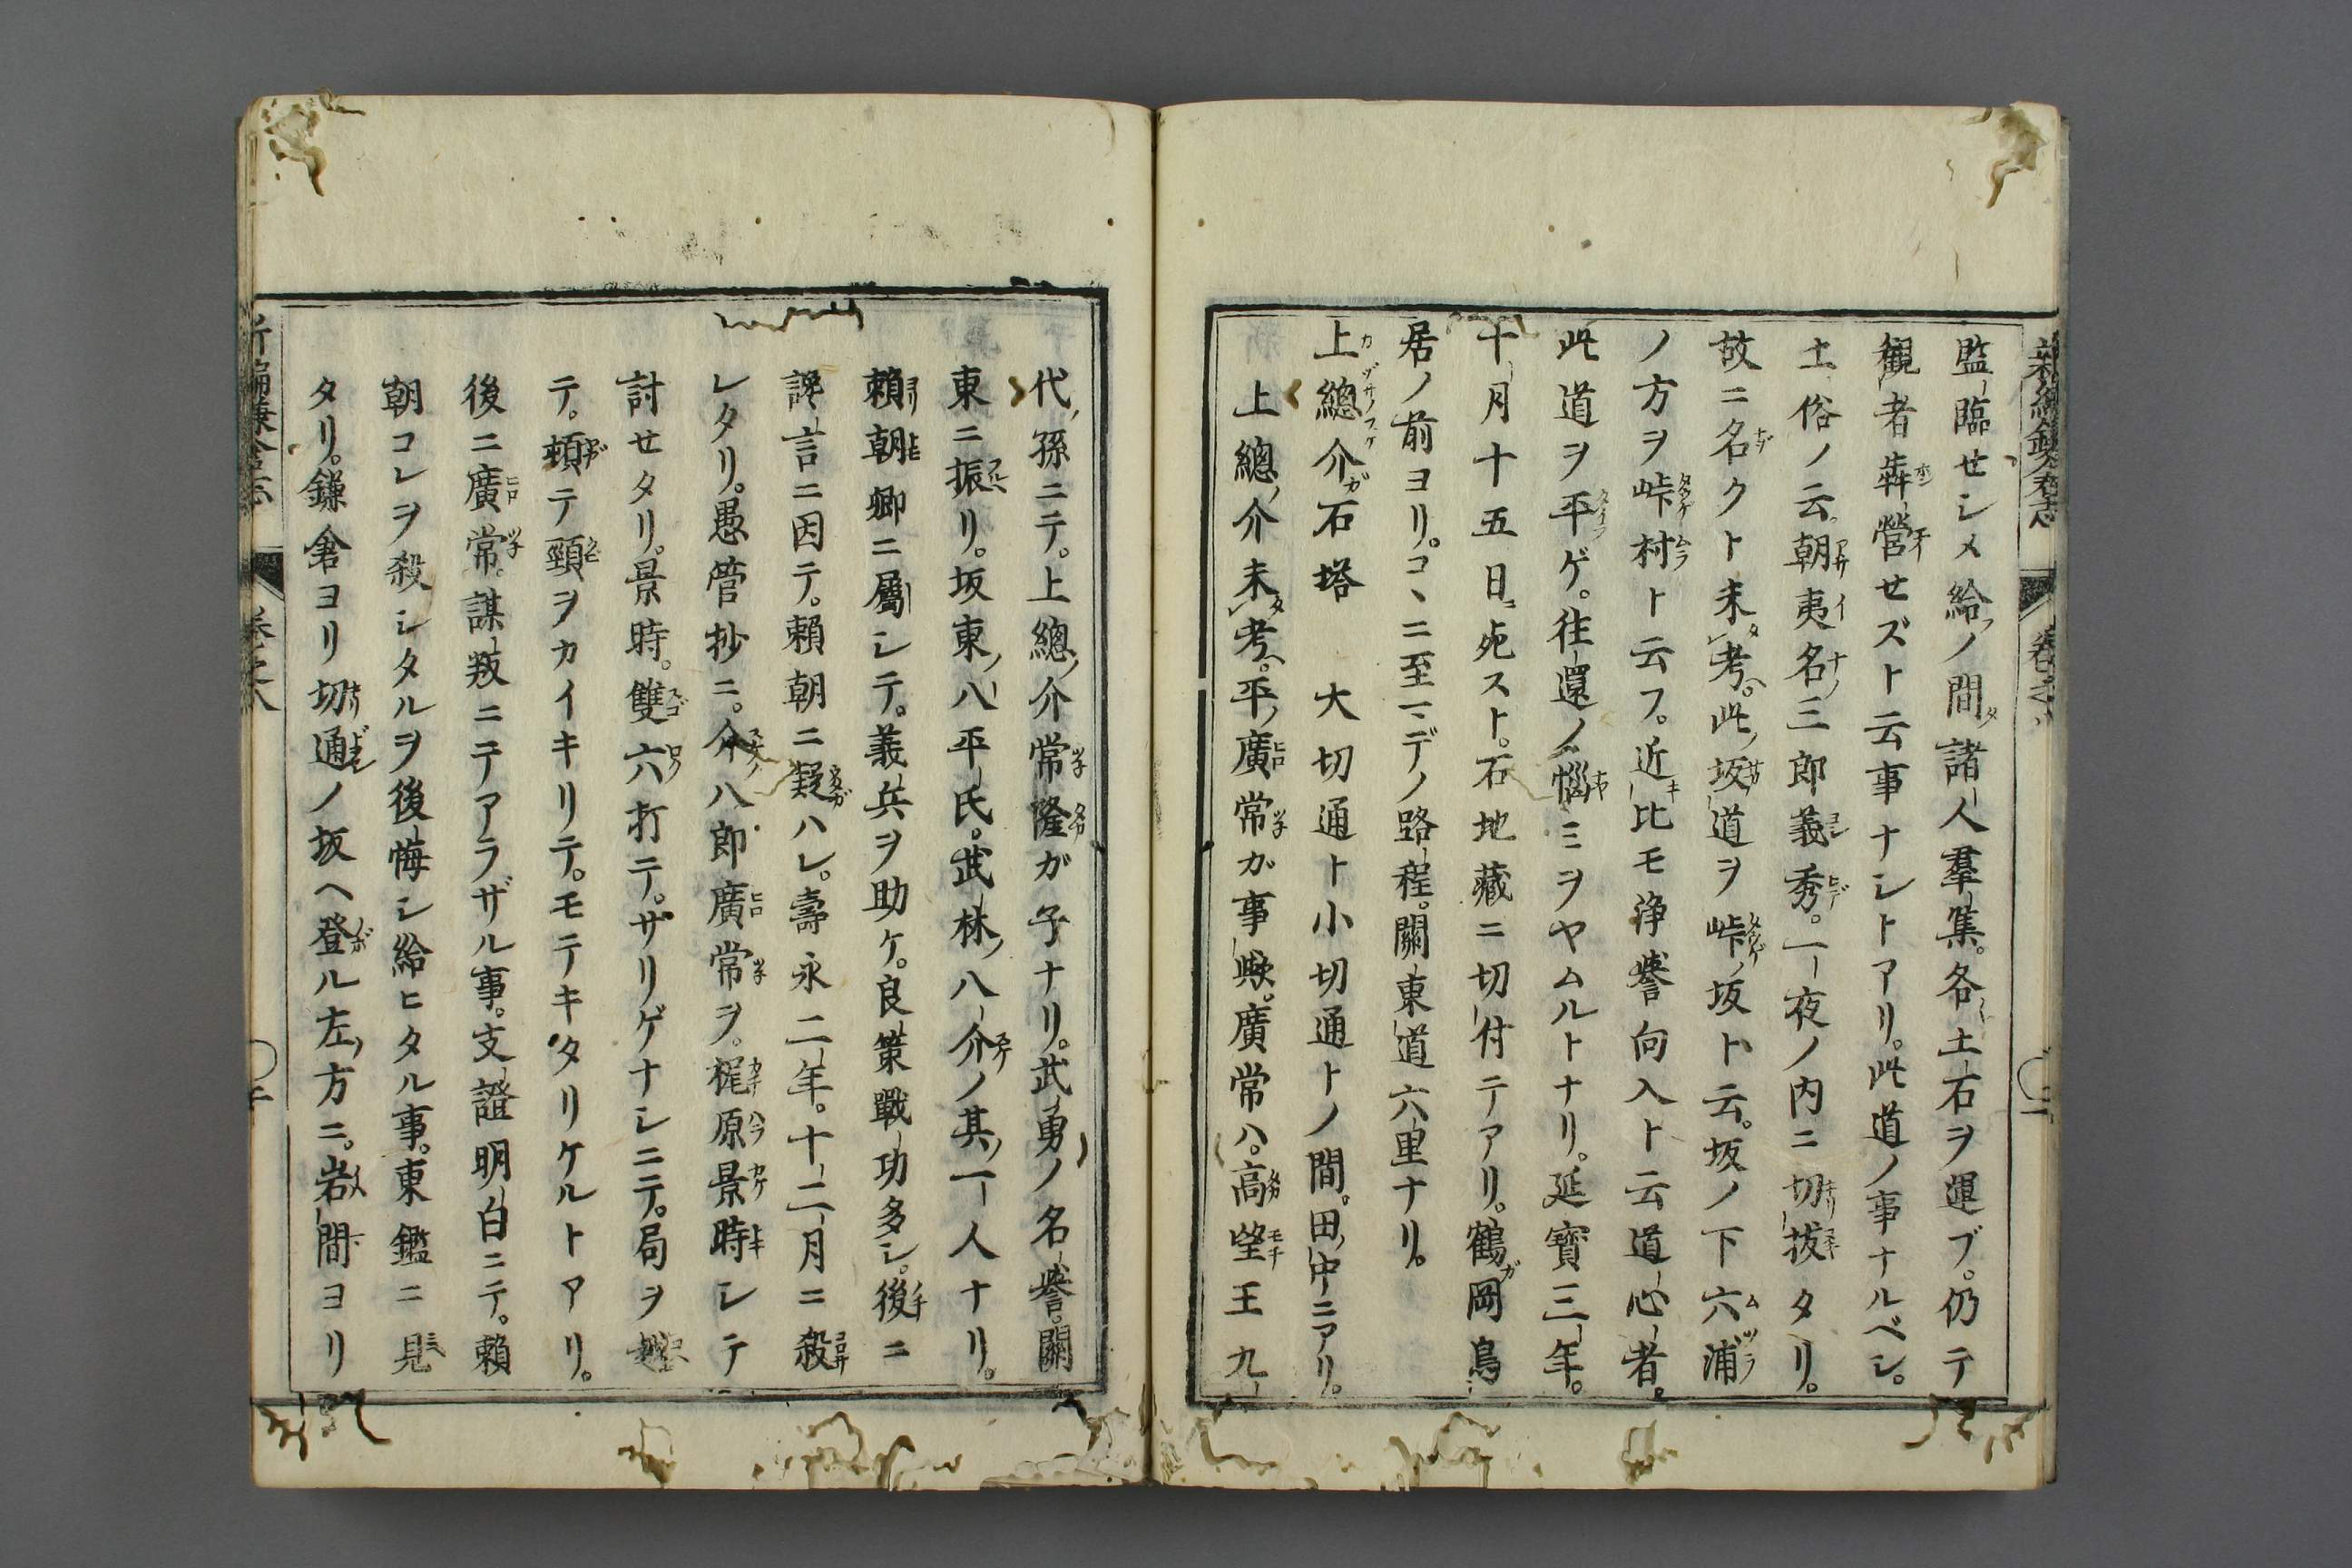 監臨セシメ給フノ間諸人羣集。各土石ヲ運ブ。仍テ
觀者犇營セズト云事ナシトアリ。此道ノ事ナルベシ。
土俗ノ云。朝夷名三郎義秀。一夜ノ内ニ切拔タリ。
故ニ名クト未考。此坂道ヲ峠坂ト云。坂ノ下六浦
ノ方ヲ峠村ト云フ。近比モ淨譽向入ト云道心者。
此道ヲ平ゲ。往還ノ惱ミヲヤムルトナリ。延寶三年。
十月十五日ニ死スト。石地藏ニ切付テアリ。鶴岡鳥
居ノ前ヨリ。コヽニ至マデノ路程。關東道六里ナリ。
上總介石塔　大切通ト小切通トノ間。田中ニアリ。
上總ノ介未考。平ノ廣常ガ事歟。廣常ハ。高望王九
代ノ孫ニテ。上總ノ介常隆ガ子ナリ。武勇ノ名譽。關
東ニ振リ。坂東ノ八平氏。武林ノ八介ノ其ノ一人ナリ。
賴朝卿ニ屬シテ。義兵ヲ助ケ。良策戰功多シ。後ニ
讒言ニ因テ。賴朝ニ疑ハレ。壽永二年。十二月ニ殺
レタリ。愚管抄ニ。介ノ八郎廣常ヲ。梶原景時シテ
討セタリ。景時。雙六打テ。サリゲナシニテ。局ヲ越
テ。頓テ頸ヲカイキリテ。モテキタリケルトアリ。
後ニ廣常。謀叛ニテアラザル事。支證明白ニテ。賴
朝コレヲ殺シタルヲ後悔シ給ヒタル事。東鑑ニ見
タリ。鎌倉ヨリ切通ノ坂ヘ登ル左ノ方ニ。岩間ヨリ